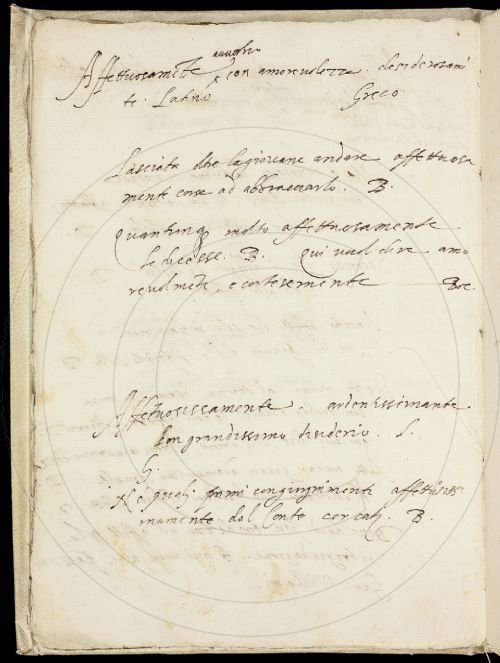 Affettuosamẽte avverbio con amorevolezza. desiderosamẽ
te. Latino Greco
Lasciata oltre la giovane andare affettuosa
mente corse ad abbracciarlo. B.
Quantunq̃ molto affettuosamente
le dicesse. B. Qui vuol dire amo
revolmẽte, e cortesemente Boc.
Affettuosissamente. ardentissimante
Con grandissimo disiderio. L.
G.
Ne quali congiugnimenti affettuosis
mamente dal Conte cercati. B.